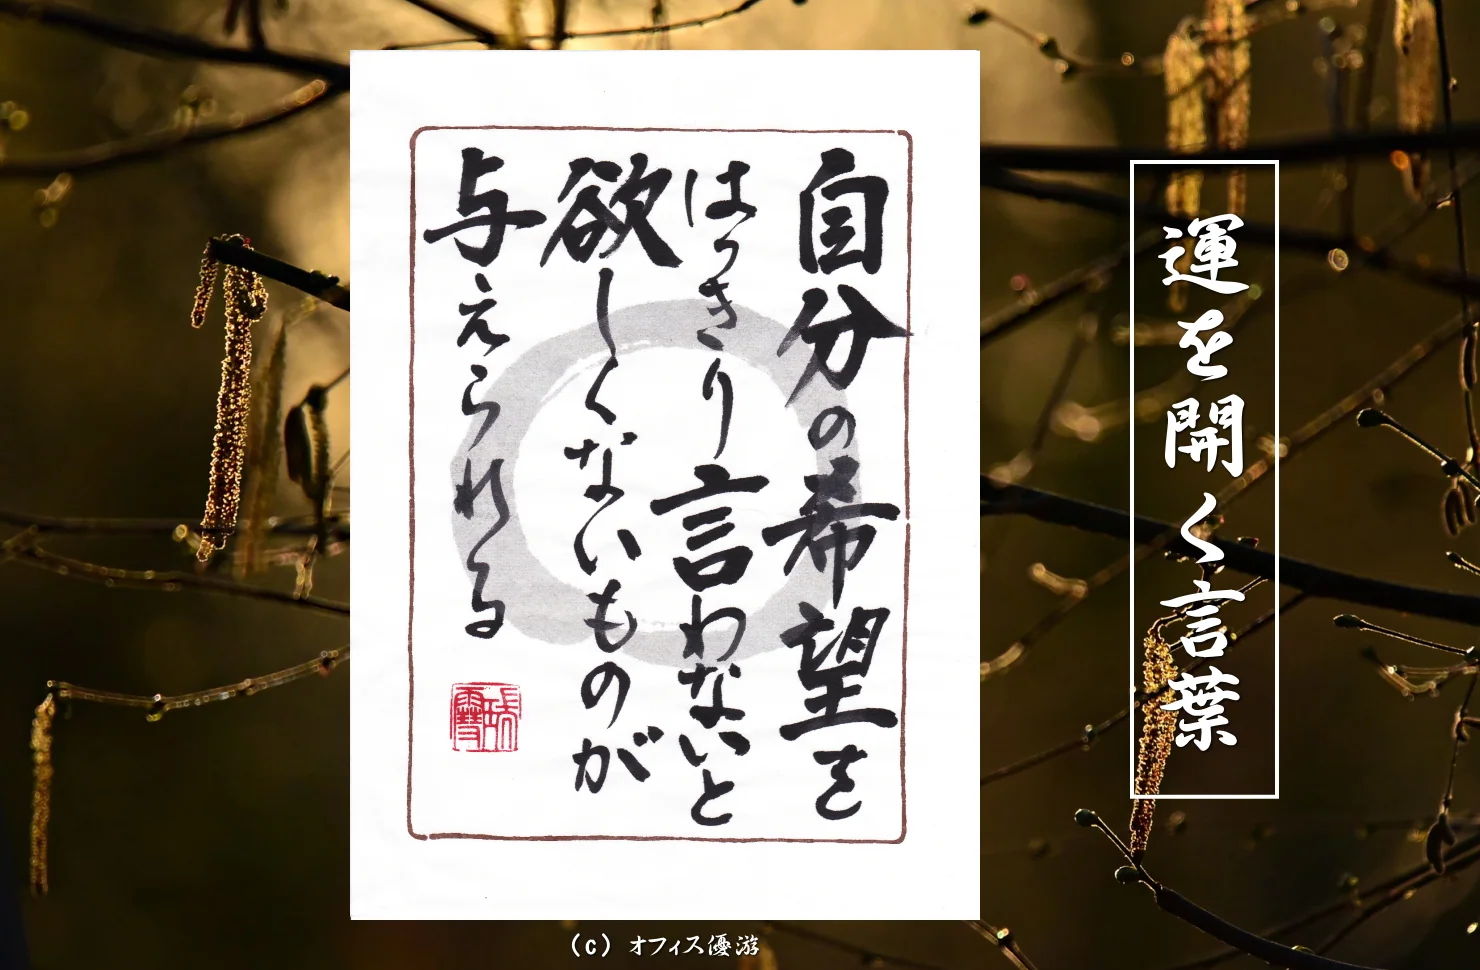 運を開く言葉
自分の希望を
はっきり言わないと
欲しくないものが
与えられる
(c) オフィス優游